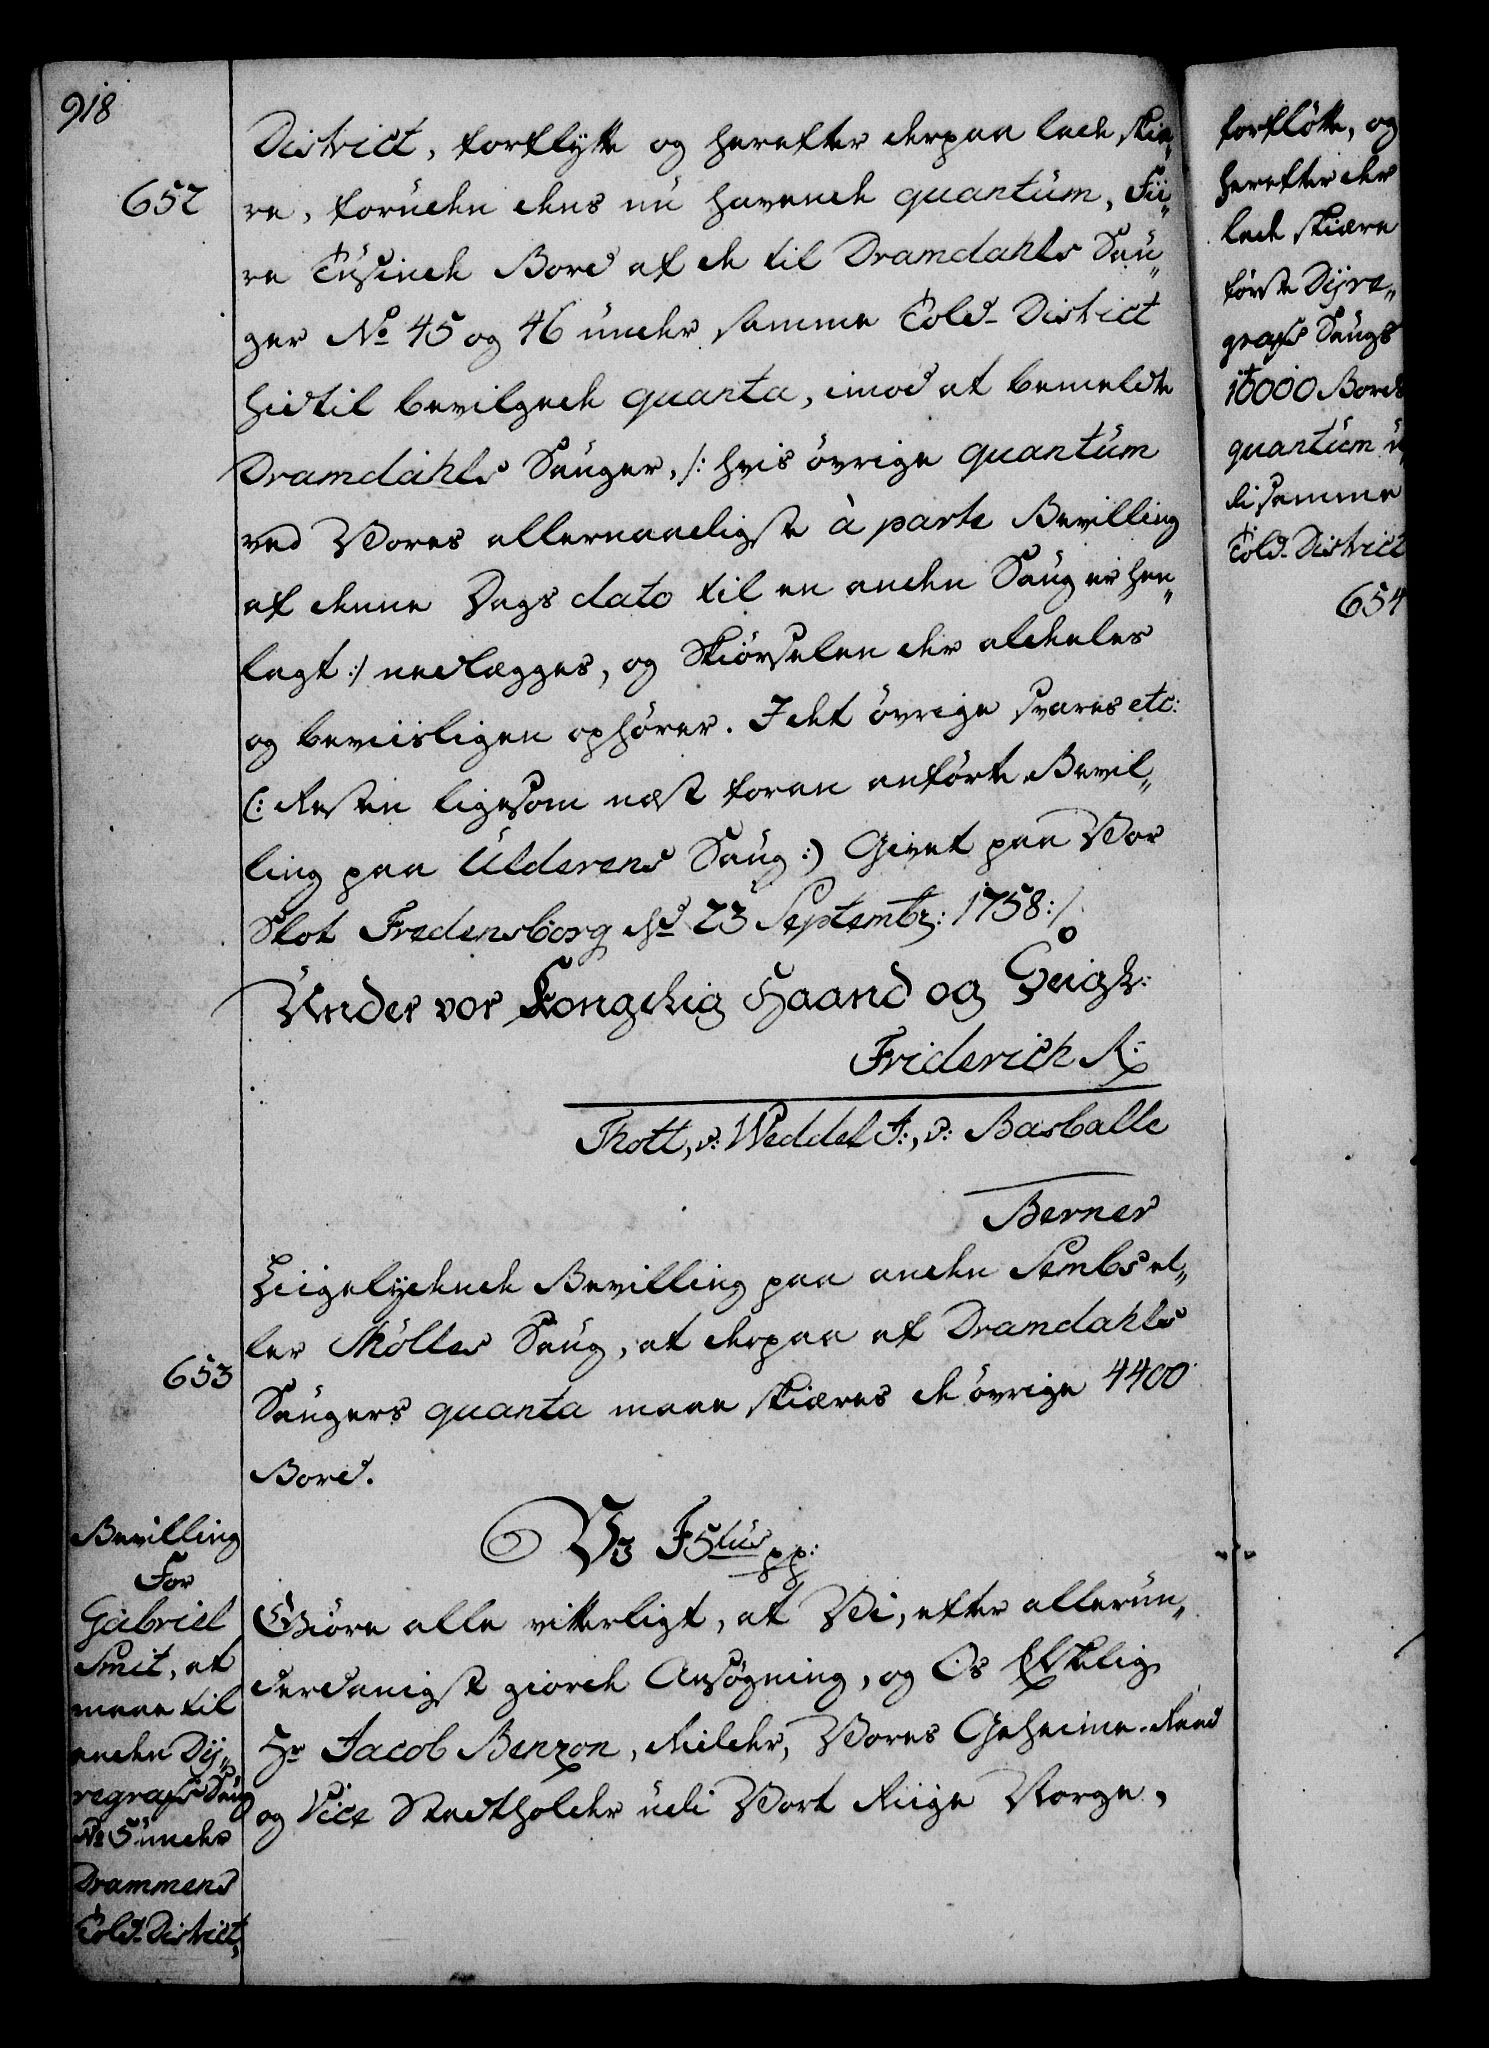 918
652
District, forflytte og herefter derpaa lade skiæ„
re, foruden dens nu havende quantum, Fii„
re Tusinde Bord af de til Dramdahls Sau„
ger No 45 og 46 under samme Told-District
hidtil bevilgede quanta, imod at bemeldte
Dramdahls Sauger, /: hvis övrige quantum
ved Vores allernaadigste à parte Bevilling
af denne Dags dato til en anden Saug er hen„
lagt :/ nedlægges, og Skiörselen der aldeeles
og beviisligen ophörer. I det övrige svares etc:
(: Resten ligesom næst foran anförte Bevil„
ling paa Ulderens Saug :) Givet paa Vor
Slot Fredensborg dd 23 Septembr: 1758 :/
Under vor Kongelig Haand og Zeigl:
Friderich R:
Thott, v: Weddel F:, v: Barballe
Berner
653
Liigelydende Bevilling paa anden Sembs el„
ler Mölles Saug, at derpaa af Dramdahls
Saugers quanta maae skiæres de övrige 4400
Bord.
Vz F5tus pp:
Bevilling
For
Gabriel
Smit, at
maae til
anden Dy„
regrafs Saug
No 5 under
Drammens
Told-District,
Giöre alle vitterligt, at Vi, efter allerun„
derdanigst giorde Ansögning, og Os Elskelig
Hr Jacob Benzon, Ridder, Vores Geheime-Raad
og Vice Stadtholder udi Vort Riige Norge,
forflötte, og
herefter der
lade skiære
förste Dyre„
grafs Saugs
10000 Bords
quantum u„
di samme
Told-District
654